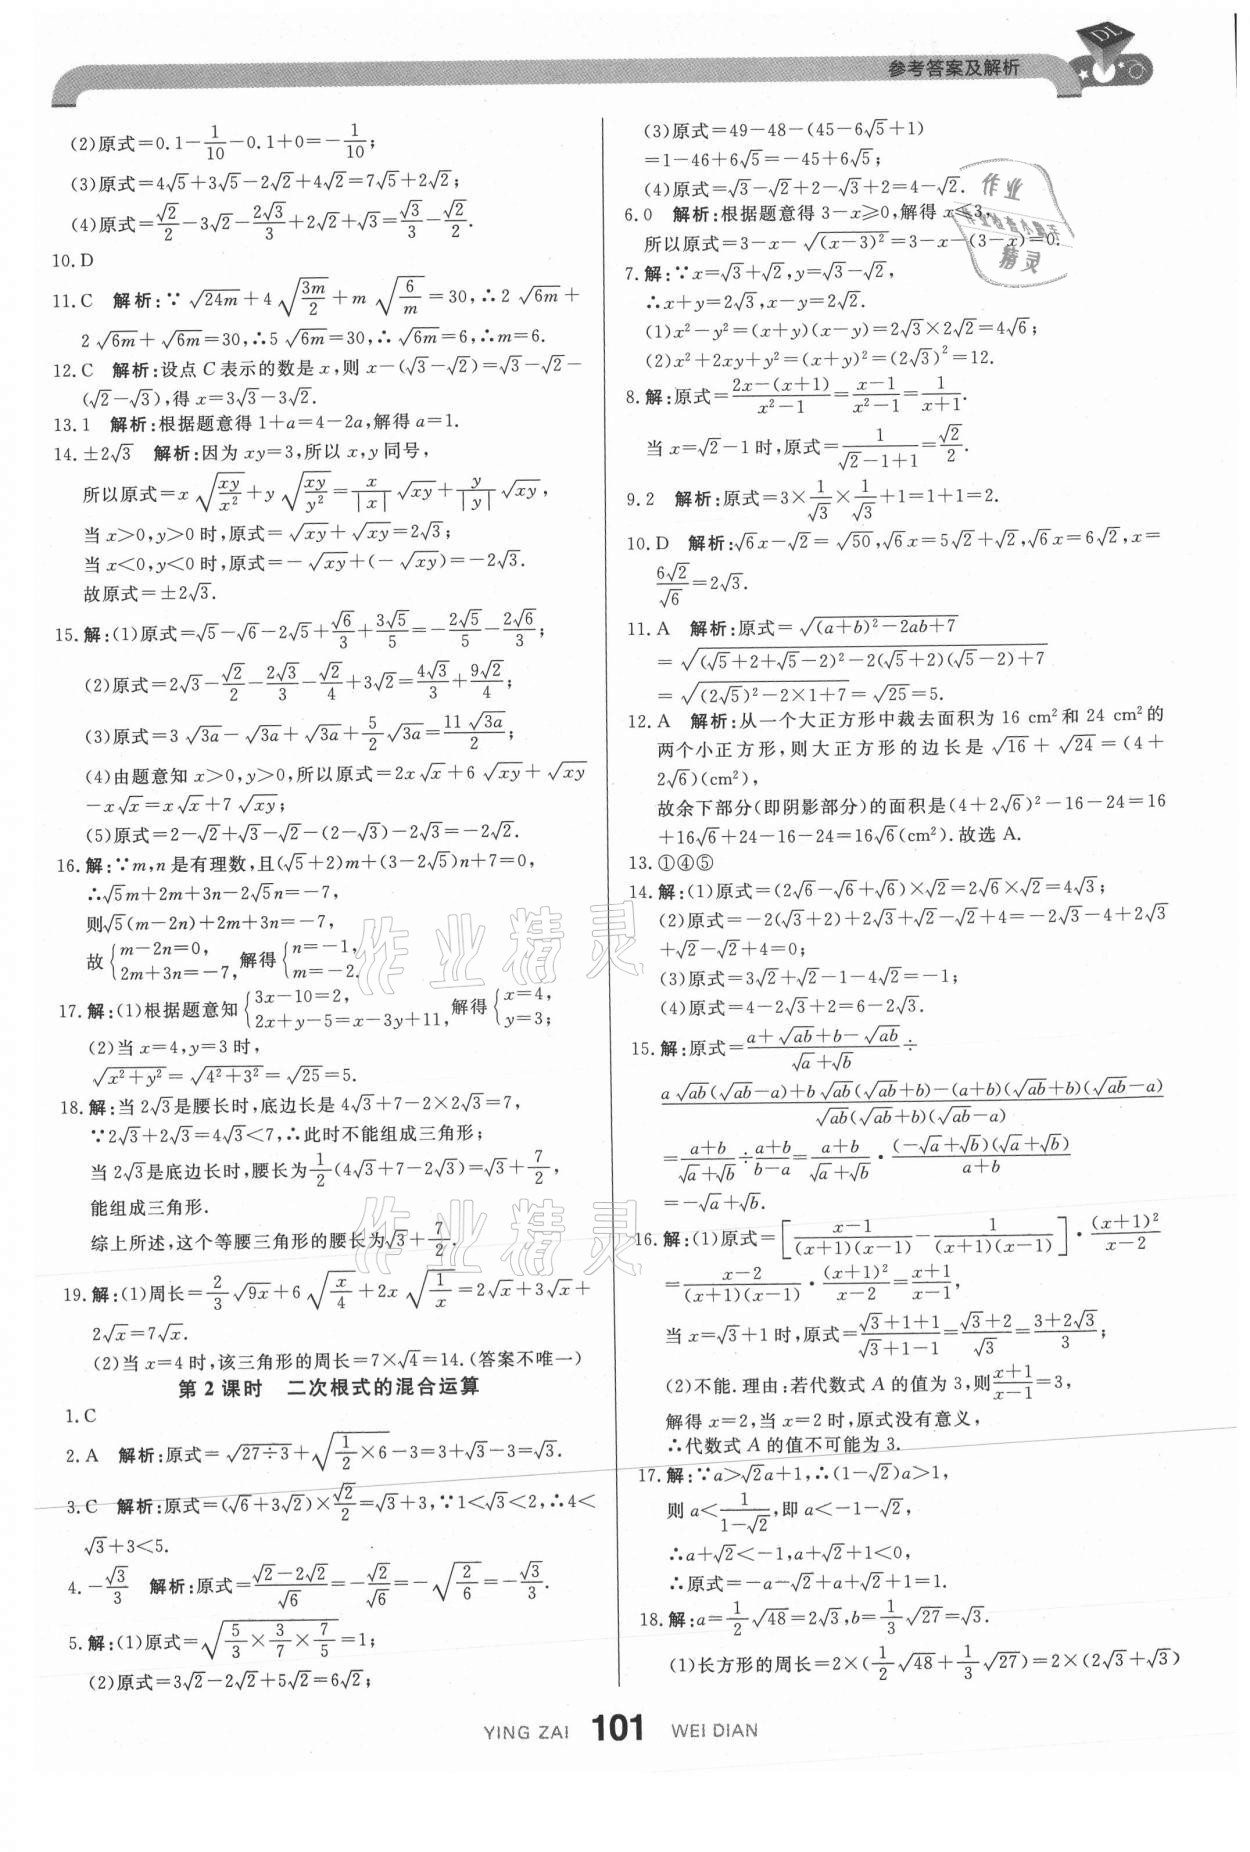 参考答案及解析
DL
(2)原式=0.1-1/10-0.1+0=-1/10;
(3)原式=4√5+3√5-2√2+4√2=7√5+2√2;
(4)原式=√2/2-3√2-2√3/3+2√2+√3=√3/3-√2/2.
10.D
11.C 解析:∵√(24m)+4√(3m/2)+m√(6/m)=30,∴2√(6m)+
2√(6m)+√(6m)=30,∴5√(6m)=30,∴√(6m)=6,∴m=6.
12.C 解析:设点C表示的数是x,则x-(√3-√2)=√3-√2-
(√2-√3),得x=3√3-3√2.
13.1 解析:根据题意得1+a=4-2a,解得a=1.
14.±2√3 解析:因为xy=3,所以x,y同号,
所以原式=x√(xy/x²)+y√(xy/y²)=x/|x|√(xy)+y/|y|√(xy),
当x>0,y>0时,原式=√(xy)+√(xy)=2√3;
当x<0,y<0时,原式=-√(xy)+(-√(xy))=-2√3.
故原式=±2√3.
15.解:(1)原式=√5-√6-2√5+√6/3+3√5/5=-2√5/5-2√6/3;
(2)原式=2√3-√2/2-2√3/3-√2/4+3√2=4√3/3+9√2/4;
(3)原式=3√(3a)-√(3a)+√(3a)+5/2√(3a)=11√(3a)/2;
(4)由题意知x>0,y>0,所以原式=2x√x+6√(xy)+√(xy)
-x√x=x√x+7√(xy);
(5)原式=2-√2+√3-√2-(2-√3)-2√3=-2√2.
16.解:∵m,n是有理数,且(√5+2)m+(3-2√5)n+7=0,
∴√5m+2m+3n-2√5n=-7,
则√5(m-2n)+2m+3n=-7,
故{m-2n=0, 2m+3n=-7,解得{n=-1, m=-2.
17.解:(1)根据题意知{3x-10=2, 2x+y-5=x-3y+11,解得{x=4, y=3;
(2)当x=4,y=3时,
√(x²+y²)=√(4²+3²)=√25=5.
18.解:当2√3是腰长时,底边长是4√3+7-2×2√3=7,
∵2√3+2√3=4√3<7,∴此时不能组成三角形;
当2√3是底边长时,腰长为1/2(4√3+7-2√3)=√3+7/2,
能组成三角形.
综上所述,这个等腰三角形的腰长为√3+7/2.
19.解:(1)周长=2/3√(9x)+6√(x/4)+2x√(1/x)=2√x+3√x+
2√x=7√x.
(2)当x=4时,该三角形的周长=7×√4=14.(答案不唯一)
第2课时 二次根式的混合运算
1.C
2.A 解析:原式=√(27÷3)+√(1/2×6)-3=3+√3-3=√3.
3.C 解析:原式=(√6+3√2)×√2/2=√3+3,∵1<√3<2,∴4<
√3+3<5.
4.-√3/3 解析:原式=(√2-2√2)/√6=-√2/√6=-√(2/6)=-√3/3.
5.解:(1)原式=√(5/3×3/7×7/5)=1;
(2)原式=3√2-2√2+5√2=6√2;
(3)原式=49-48-(45-6√5+1)
=1-46+6√5=-45+6√5;
(4)原式=√3-√2+2-√3+2=4-√2.
6.0 解析:根据题意得3-x≥0,解得x≤3,
所以原式=3-x-√((x-3)²)=3-x-(3-x)=0.
7.解:∵x=√3+√2,y=√3-√2,
∴x+y=2√3,x-y=2√2.
(1)x²-y²=(x+y)(x-y)=2√3×2√2=4√6;
(2)x²+2xy+y²=(x+y)²=(2√3)²=12.
8.解:原式=(2x-(x+1))/(x²-1)=(x-1)/(x²-1)=1/(x+1).
当x=√2-1时,原式=1/(√2-1+1)=√2/2.
9.2 解析:原式=3×1/√3×1/√3+1=1+1=2.
10.D 解析:√6x-√2=√50,√6x=5√2+√2,√6x=6√2,x=
6√2/√6=2√3.
11.A 解析:原式=√((a+b)²-2ab+7)
=√((√5+2+√5-2)²-2(√5+2)(√5-2)+7)
=√((2√5)²-2×1+7)=√25=5.
12.A 解析:从一个大正方形中裁去面积为16 cm²和24 cm²的
两个小正方形,则大正方形的边长是√16+√24=(4+
2√6)(cm²),
故余下部分(即阴影部分)的面积是(4+2√6)²-16-24=16
+16√6+24-16-24=16√6(cm²).故选A.
13.①④⑤
14.解:(1)原式=(2√6-√6+√6)×√2=2√6×√2=4√3;
(2)原式=-2(√3+2)+2√3+√2-√2+4=-2√3-4+2√3
+√2-√2+4=0;
(3)原式=3√2+√2-1-4√2=-1;
(4)原式=4-2√3+2=6-2√3.
15.解:原式=(a+√(ab)+b-√(ab))/(√a+√b)÷
(a√(ab)(√(ab)-a)+b√(ab)(√(ab)+b)-(a+b)(√(ab)+b)(√(ab)-a))/(√(ab)(√(ab)+b)(√(ab)-a))
=(a+b)/(√a+√b)÷(a+b)/(b-a)=(a+b)/(√a+√b)·(-√a+√b)(√a+√b)/(a+b)
=-√a+√b.
16.解:(1)原式=[(x-1)/((x+1)(x-1))-1/((x+1)(x-1))]·(x+1)²/(x-2)
=(x-2)/((x+1)(x-1))·(x+1)²/(x-2)=(x+1)/(x-1),
当x=√3+1时,原式=(√3+1+1)/(√3+1-1)=(√3+2)/√3=(3+2√3)/3;
(2)不能.理由:若代数式A的值为3,则(x+1)/(x-1)=3,
解得x=2,当x=2时,原式没有意义,
∴代数式A的值不可能为3.
17.解:∵a>√2a+1,∴(1-√2)a>1,
则a<1/(1-√2),即a<-1-√2,
∴a+√2<-1,a+√2+1<0,
∴原式=-a-√2+a+√2+1=1.
18.解:a=1/2√48=2√3,b=1/3√27=√3.
(1)长方形的周长=2×(1/2√48+1/3√27)=2×(2√3+√3)
YING ZAI 101 WEI DIAN
作业
作业检查小助手
精灵
作业精灵
作业精灵